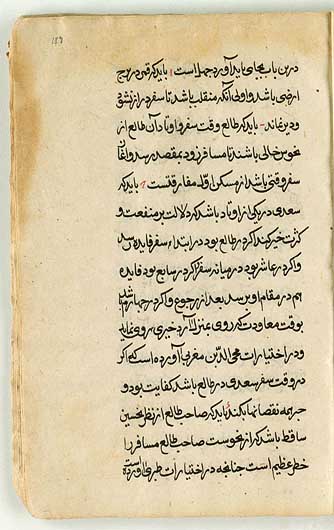 درین باب بجای باید آورد جمله است باید که قمر در برج
ارضی باشد و اولی آنکه منقلب باشد تا سفر دراز نشود
و دیر نماند باید که طالع وقت سفر و اوتاد آن طالع از
نحوس خالی باشند تا مسافر زود بمقصد رسد و اغاز
سفر وقتی باشد از مسکن اول مفارقتست باید که
سعدی در یکی از اوتاد باشد که دلالت بر منفعت و
کثرت خیر کند اگر در طالع بود در ابتداء سفر فایده رسد
و اگر در عاشر بود در میانه سفر و اگر در سابع بود فایده
هم در مقام او رسد بعد از رجوع و اگر در چهارم باشد
بوقت معاودت که روی بمنزل آرد خیری روی نماید
و در اختیارات محی الدین مغربی آورده است که اگر
در وقت سفر سعدی در طالع باشد کفایت بود و
جرمه نقصانها بکند باید که صاحب طالع از نظر نحسین
ساقط باشد که از نحوست صاحب طالع مسافر را
خطر عظیم است چنانچه در اختیارات طبری آورده